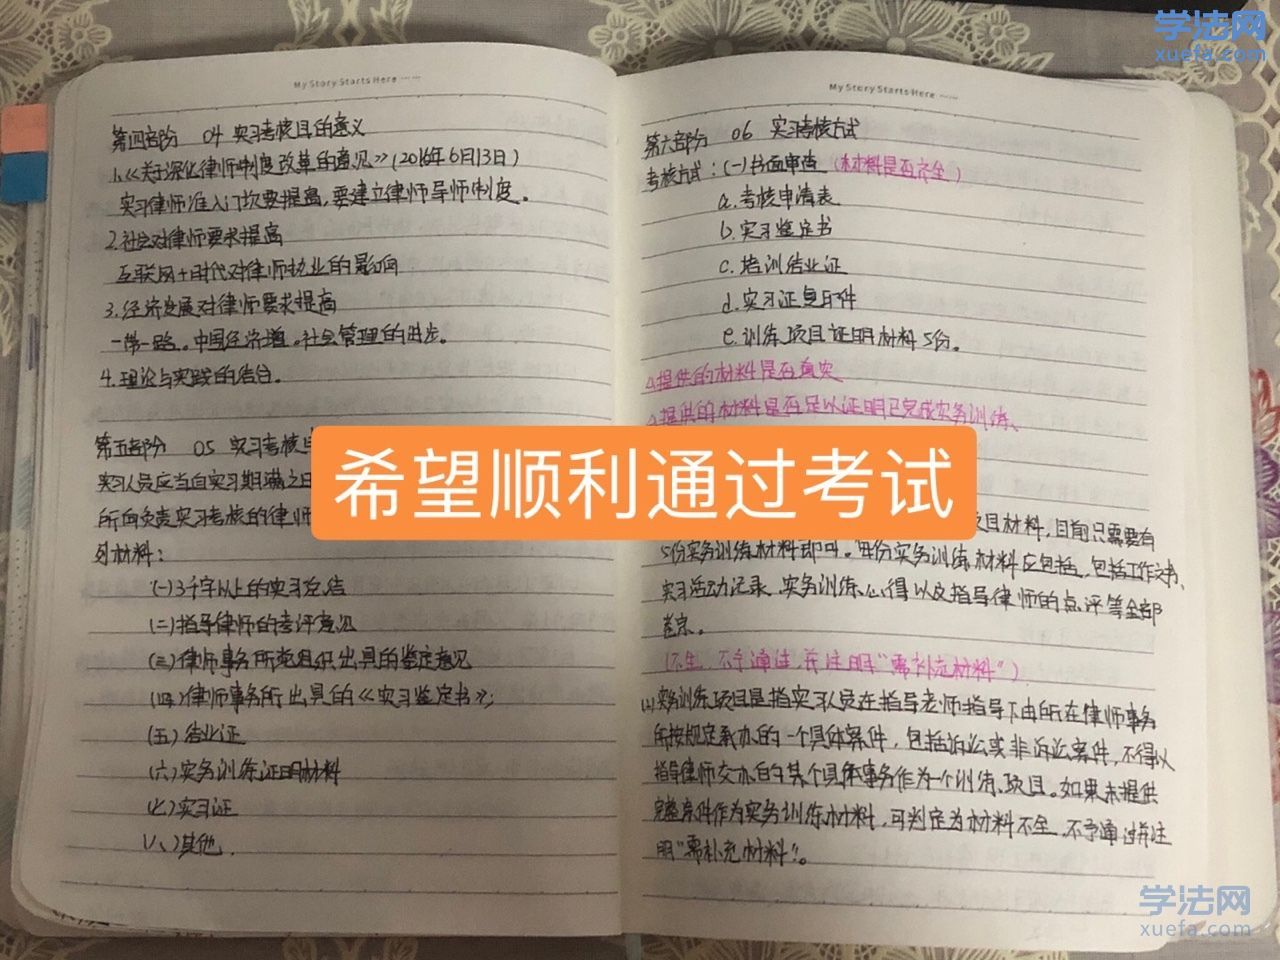 学法网
xuefa.com
My Story Starts Here ······
第四部份 04 实习考核目的意义
1.《关于深化律师制度改革的意见》(2016年6月13日)
实习律师准入门坎要提高,要建立律师导师制度。
2.社会对律师要求提高
互联网+时代对律师执业的影响
3.经济发展对律师要求提高
一带一路。中国经济增。社会管理的进步。
4.理论与实践的结合。
第五部份 05 实习考核
实习人员应当自实习期满之日
所向负责实习考核的律师
列材料:
(一)3千字以上的实习总结
(二)指导律师的考评意见
(三)律师事务所党组织出具的鉴定意见
(四)律师事务所出具的《实习鉴定书》;
(五)结业证
(六)实务训练证明材料
(七)实习证
(八)其他.
My Story Starts Here ······
第六部份 06 实习考核方式
考核方式:(一)书面审查(材料是否齐全)
a.考核申请表
b.实习鉴定书
c.培训结业证
d.实习证复印件
e.训练项目证明材料5份。
△提供的材料是否真实
△提供的材料是否足以证明已完成实务训练、
希望顺利通过考试
项目材料,目前只需要有
5份实务训练材料即可。每份实务训练材料应包括,包括工作文书、
实习活动记录、实务训练心得以及指导律师的点评等全部
卷宗。
(不全、不予通过,并注明"需补充材料")
实务训练项目是指实习人员在指导老师指导下由所在律师事务
所按规定承办的一个具体案件,包括诉讼或非诉讼案件,不得以
指导律师交办的某个具体事务作为一个训练项目。如果未提供
完整案件作为实务训练材料,可判定为材料不全,不予通过并注
明"需补充材料"。
学法网
xuefa.com